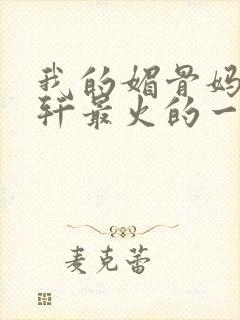 我的媚骨妈
轩最火的一
麦克蕾